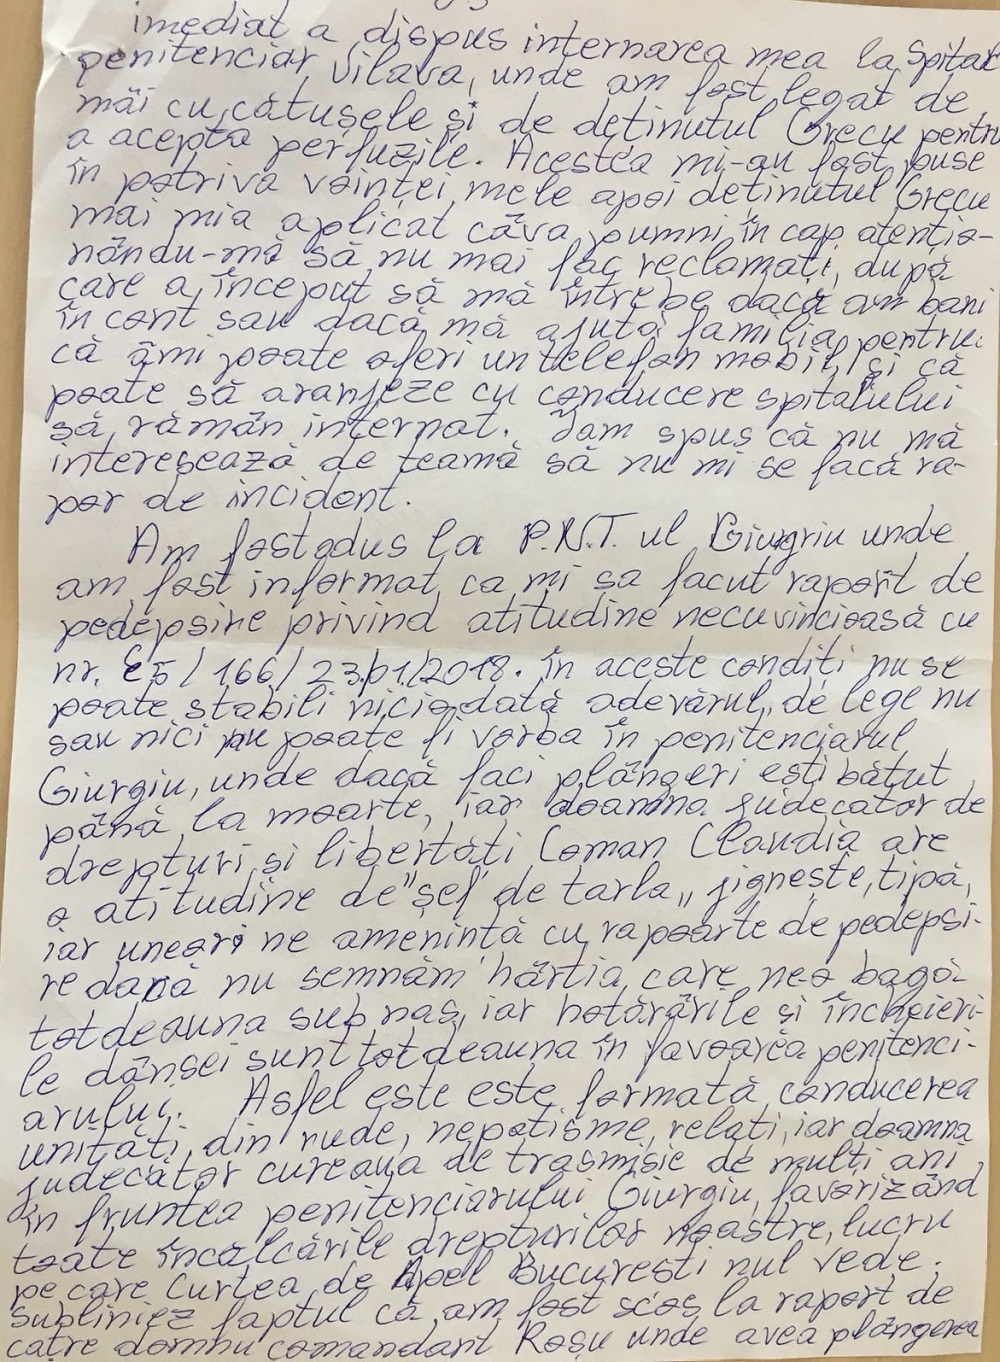 imediat a dispus internarea mea la Spital
penitenciar Jilava, unde am fost legat de
mâi cu cătușele și de deținutul Grecu pentru
a acepta perfuzile. Acestea mi-au fost puse
în potriva voinței mele apoi deținutul Grecu
mai mia aplicat câva pumni în cap atențio-
nându-mă să nu mai fac reclamați, după
care a început să mă întrebe dacă am bani
în cont sau dacă mă ajută familia pentru
că âmi poate oferi un telefon mobil și că
poate să aranjeze cu conducere spitalului
să rămân internat. Iam spus că nu mă
interesează de teamă să nu mi se facă ra-
por de incident.
Am fost adus la P.N.T. ul Giugriu unde
am fost informat ca mi sa facut raport de
pedepsire privind atitudine necuvincioasă cu
nr. E5/166/23.01.2018. în aceste condiți nu se
poate stabili niciodată adevărul, de lege nu
sau nici nu poate fi vorba în penitenciarul
Giurgiu, unde dacă faci plângeri ești bătut
până la moarte, iar doamna judecător de
drepturi și libertăți Coman Claudia are
o atitudine de "șef de tarla„ jignește, țipă,
iar uneori ne amenință cu rapoarte de pedepsi-
re dacă nu semnăm hârtia care ne-o bagă
totdeauna sub nas, iar hotărârile și încheieri-
le dânsei sunt totdeauna în favoarea penitenci-
arului. Asfel este este formată conducerea
unități din rude, nepotisme, relați, iar doamna
judecător cureaua de trasmisie de mulți ani
în fruntea penitenciarului Giurgiu, favorizând
toate încălcările drepturilor noastre, lucru
pe care Curtea de Apel București nul vede.
Subliniez faptul că am fost scos la raport de
catre domnu comandant Roșu unde avea plângerea